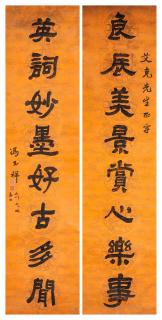 良辰美景賞心樂事
艾克先生正字
英詞妙墨好古多聞
馮玉祥